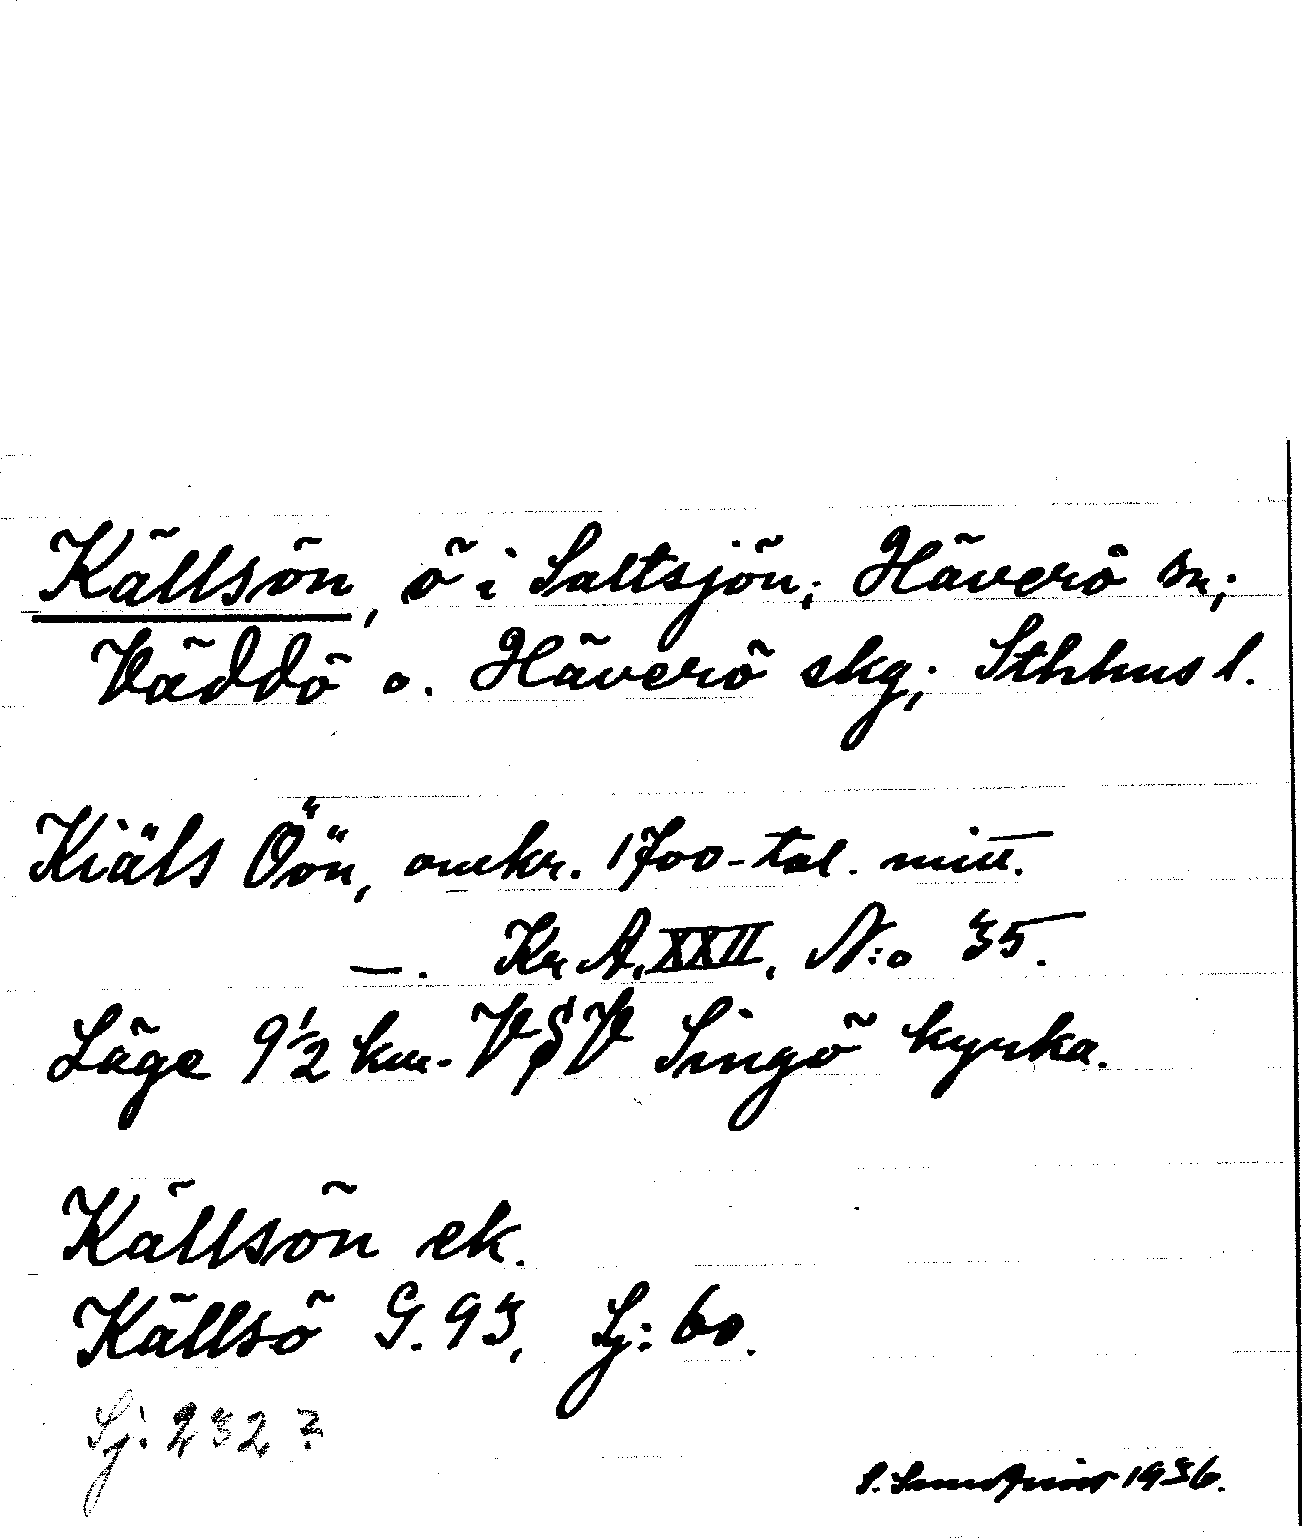 Källsön, ö i Saltsjön; Häverö sn;
Väddö o. Häverö skg; Sthhus l.
Kiäls Öön, omkr. 1700-tal. mitt.
—. Kr A. XXII, N:o 35.
Läge 9½ km. VSV Singö kyrka.
Källsön ek.
Källsö G. 93, Sj: 60.
Sj: 232 7.
S. Sundqvist 1936.